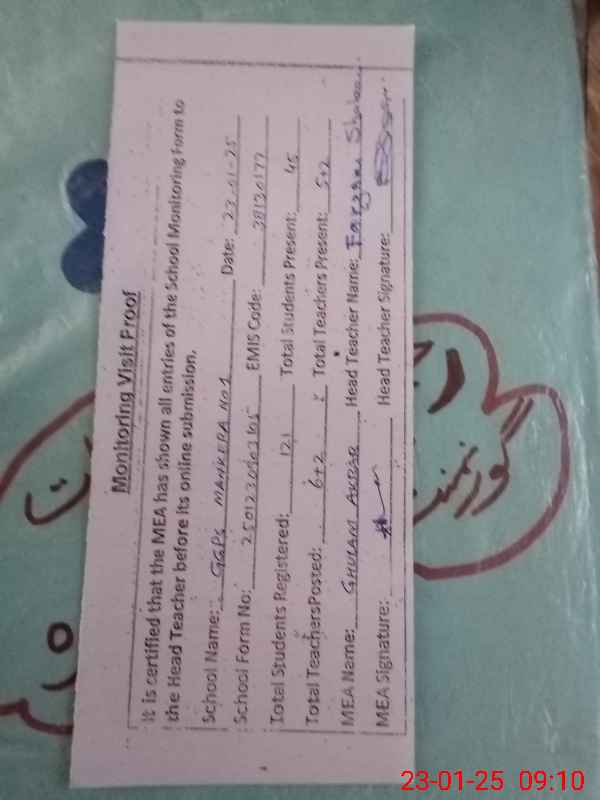 Monitoring Visit Proof
It is certified that the MEA has shown all entries of the School Monitoring Form to
the Head Teacher before its online submission.
School Name: GGPS MANKERA No1 Date: 23-01-25
School Form No: EMIS Code: 38130177
Total Students Registered: 121 Total Students Present: 45
Total TeachersPosted: 6+2 Total Teachers Present: 5+2
MEA Name: GHULAM Head Teacher Name: Farzana
MEA Signature: Head Teacher Signature:
گورنمنٹ
23-01-25 09:10